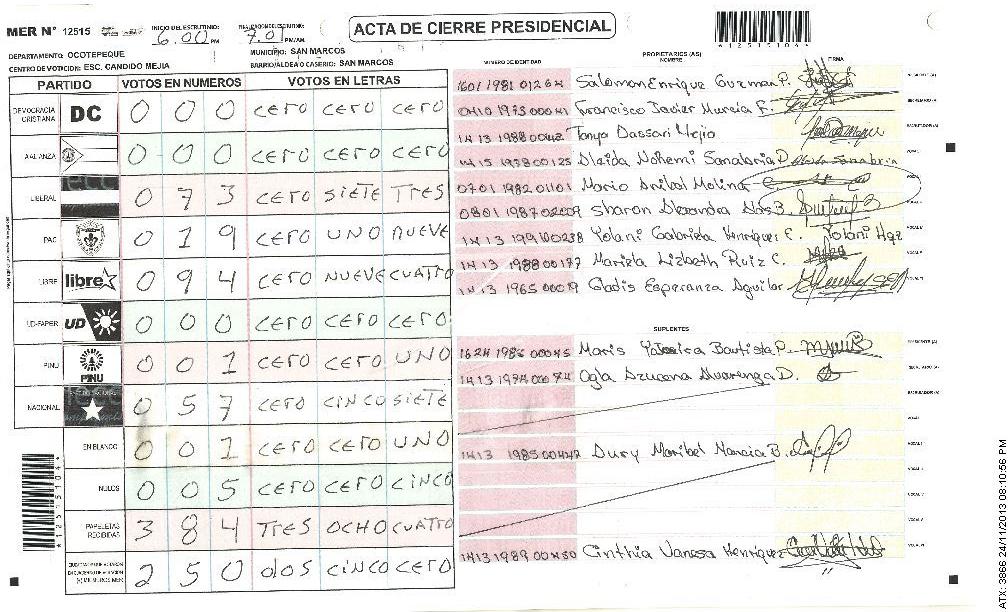 MER N° 12515
INICIO DEL ESCRUTINIO: 6.00 PM
7.01 PM/AM.
ACTA DE CIERRE PRESIDENCIAL
*12515104*
DEPARTAMENTO: OCOTEPEQUE
MUNICIPIO: SAN MARCOS
CENTRO DE VOTCION: ESC. CANDIDO MEJIA
BARRIO/ALDEA O CASERIO: SAN MARCOS
PARTIDO VOTOS EN NUMEROS VOTOS EN LETRAS
DEMOCRACIA CRISTIANA DC 0 0 0 CERO CERO CERO
0 0 0 CERO CERO CERO
LIBERAL 0 7 3 CERO SIETE TRES
PAC 0 1 9 CERO UNO NUEVE
LIBRE libre 0 9 4 CERO NUEVE CUATRO
UD-FAPER UD 0 0 0 CERO CERO CERO
PINU PINU 0 0 1 CERO CERO UNO
NACIONAL 0 5 7 CERO CINCO SIETE
EN BLANCO 0 0 1 CERO CERO UNO
NULOS 0 0 5 CERO CERO CINCO
PAPELETAS RECIBIDAS 3 8 4 TRES OCHO CUATRO
2 5 0 DOS CINCO CERO
*12515104*
NUMERO DE IDENTIDAD PROPIETARIOS (AS) NOMBRE FIRMA
1601 1981 01264 Salomon Enrique Guzman P.
0410 1973 00041 Francisco Javier Murcia F.
1413 1988 00142 Tanya Dassari Mejia
1415 1978 00125 Aleida Nohemi Sanabria D.
0701 1982 01101 Mario Anibal Molina
0801 1987 02009 Sharon Alexandra
1413 1991 00238 Yolani Gabriela Henriquez E. Yolani Hqz
1413 1988 00177 Mariela Lizbeth Ruiz C.
1413 1965 00019 Gladis Esperanza Aguilar
SUPLENTES
1624 1986 00045 Maris Yessica Bautista P.
1413 1974 00074 Olga Azucena Alvarenga D.
1413 1985 00442 Dury Maribel B.
1413 1989 00450 Cinthia Vanesa Henriquez
ATX: 3866 24/11/2013 08:10:56 PM